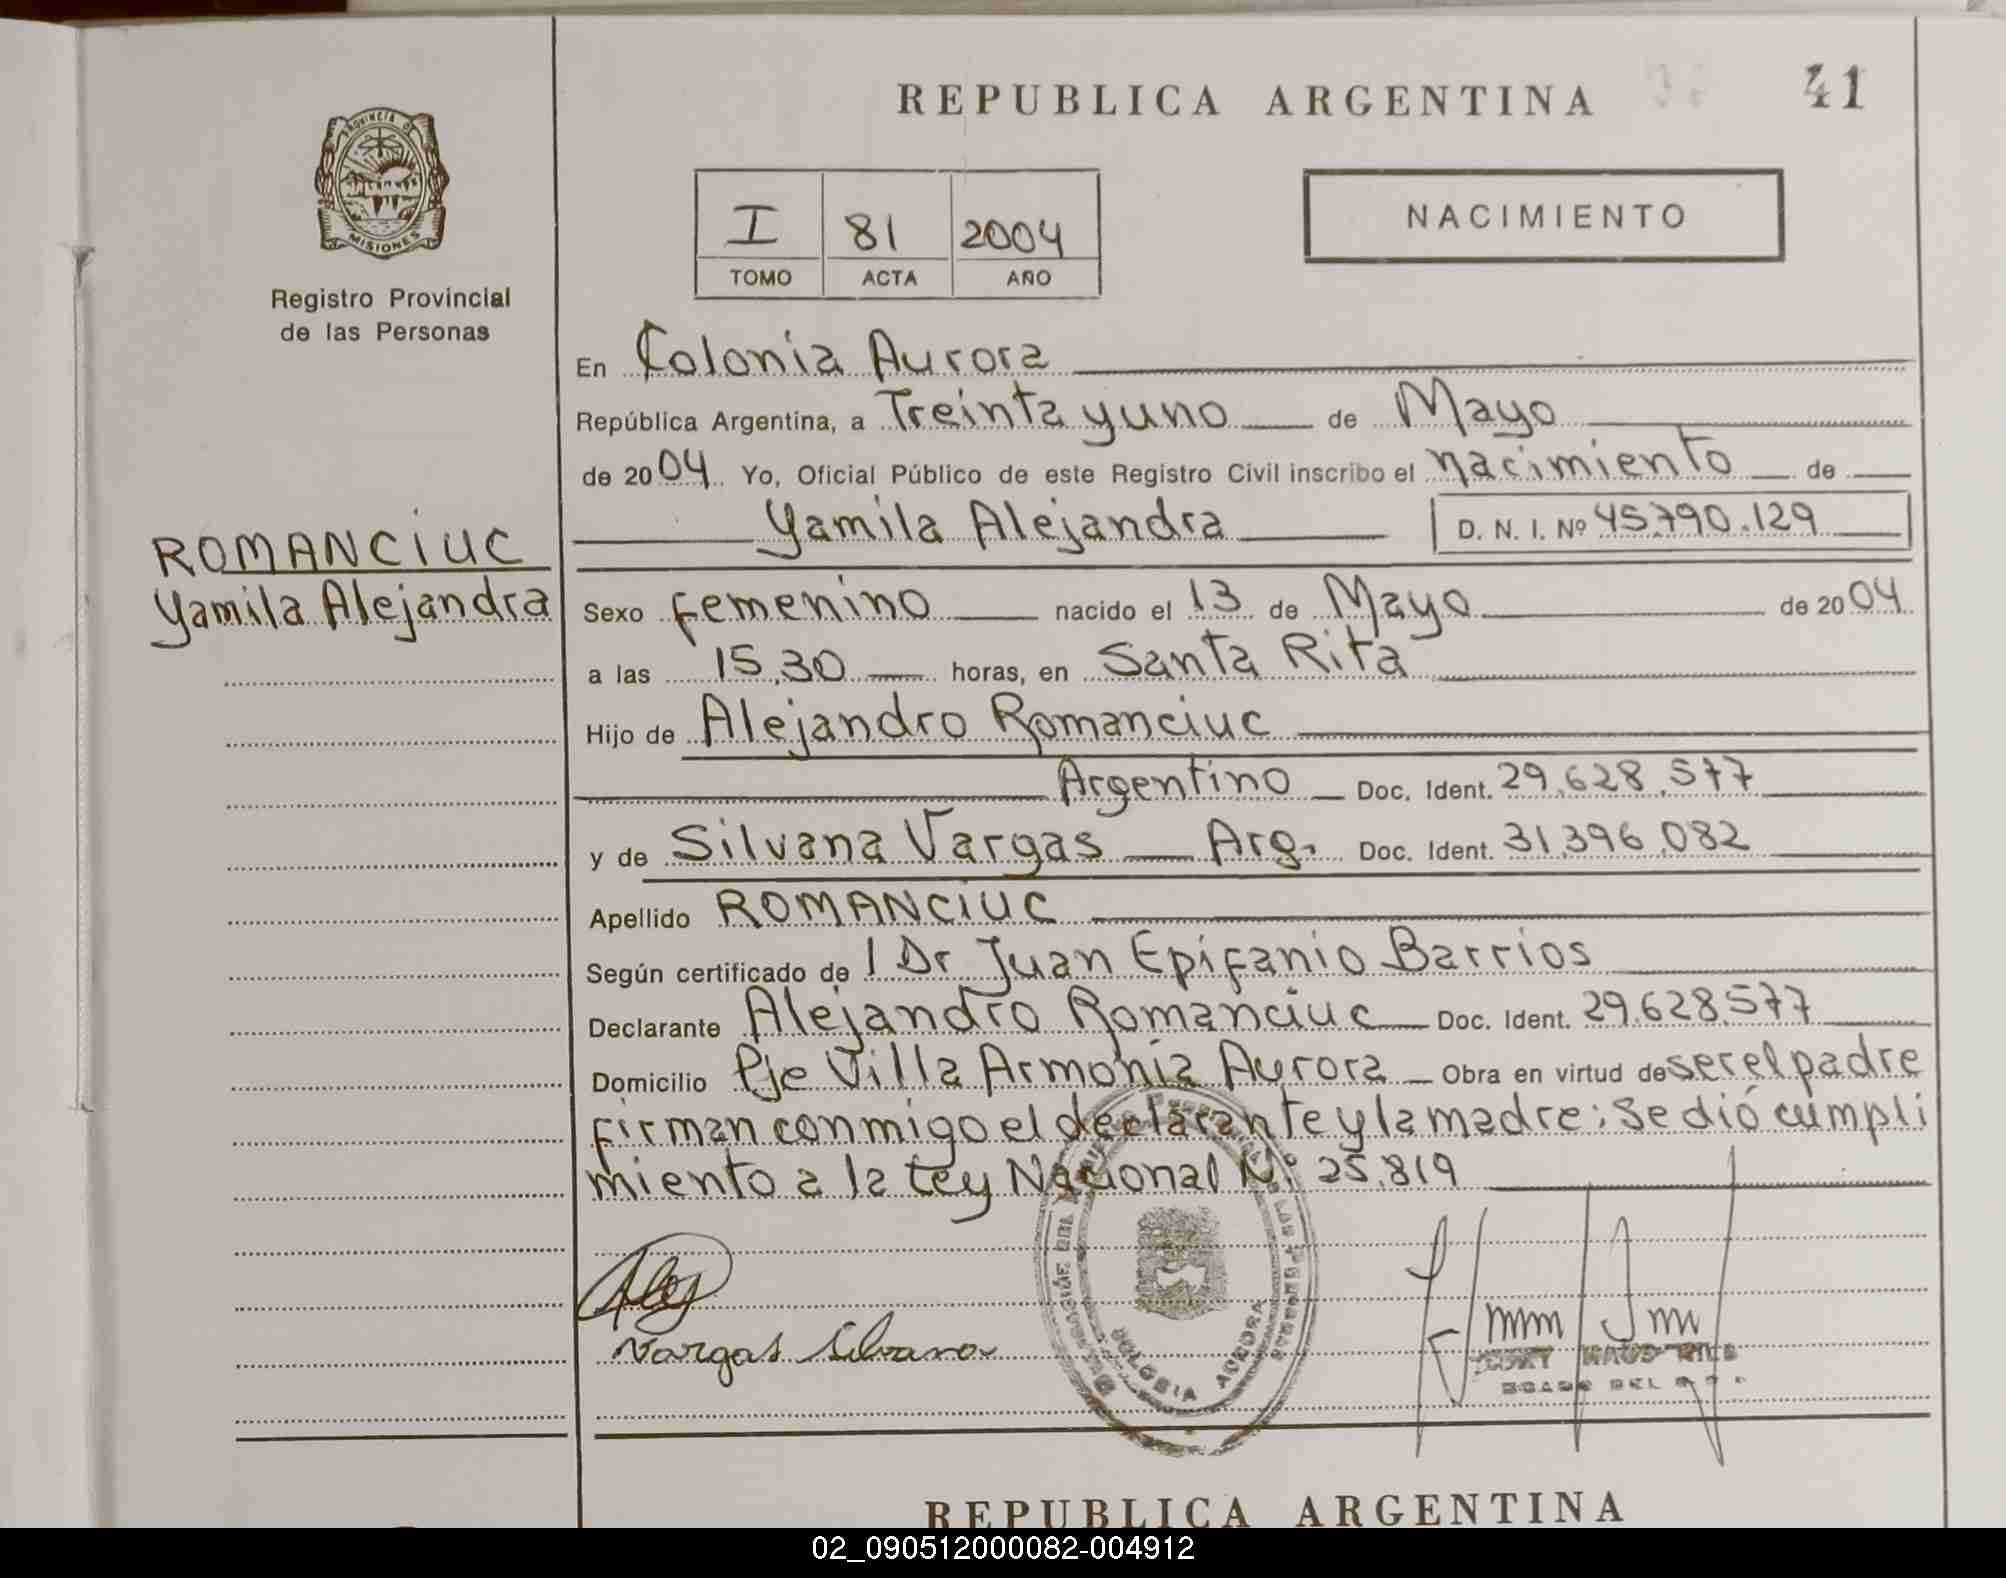 REPUBLICA ARGENTINA
41
PROVINCIA DE
MISIONES
Registro Provincial
de las Personas
I 81 2004
TOMO ACTA AÑO
NACIMIENTO
En Colonia Aurora
República Argentina, a Treinta y uno de Mayo
de 2004 Yo, Oficial Público de este Registro Civil inscribo el nacimiento de
Yamila Alejandra D. N. I. Nº 45.790.129
ROMANCIUC
Yamila Alejandra
Sexo femenino nacido el 13 de Mayo de 2004
a las 15,30 horas, en Santa Rita
Hijo de Alejandro Romanciuc
Argentino Doc. Ident. 29.628.577
y de Silvana Vargas Arg. Doc. Ident. 31.396.082
Apellido ROMANCIUC
Según certificado de l Dr Juan Epifanio Barrios
Declarante Alejandro Romanciuc Doc. Ident. 29.628.577
Domicilio Pje Villa Armonía Aurora Obra en virtud de ser el padre
firman conmigo el declarante y la madre: Se dió cumpli
miento a la Ley Nacional Nº 25.819
Vargas Silvana
COLONIA AURORA
REPUBLICA ARGENTINA
02_090512000082-004912